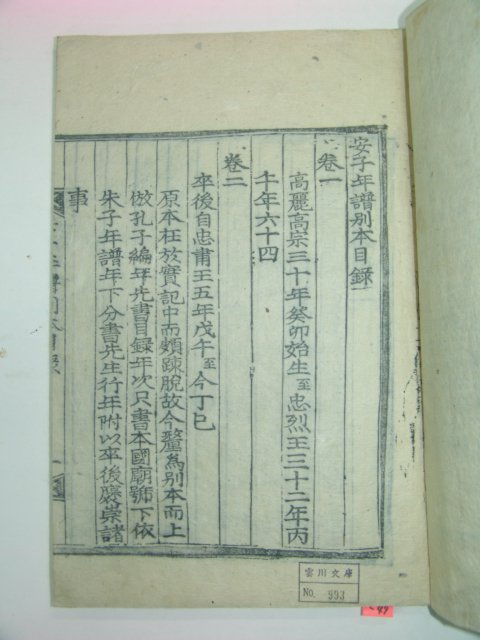 安子年譜別本目錄
卷一
高麗高宗三十年癸卯始生至忠烈王三十二年丙
午年六十四
卷二
卒後自忠肅王五年戊午至今丁巳
原本在於實記中而頗疎脫故今釐爲別本而上
倣孔子編年先書目錄年次只書本國廟號下依
朱子年譜年下分書先生行年附以卒後褒崇諸
事
雲川文庫
No. 993